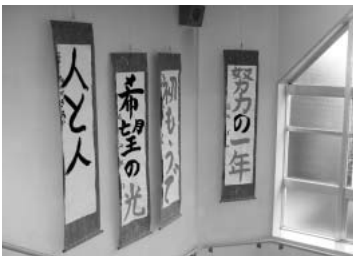 人と人
希望の光
初もうで
努力の一年